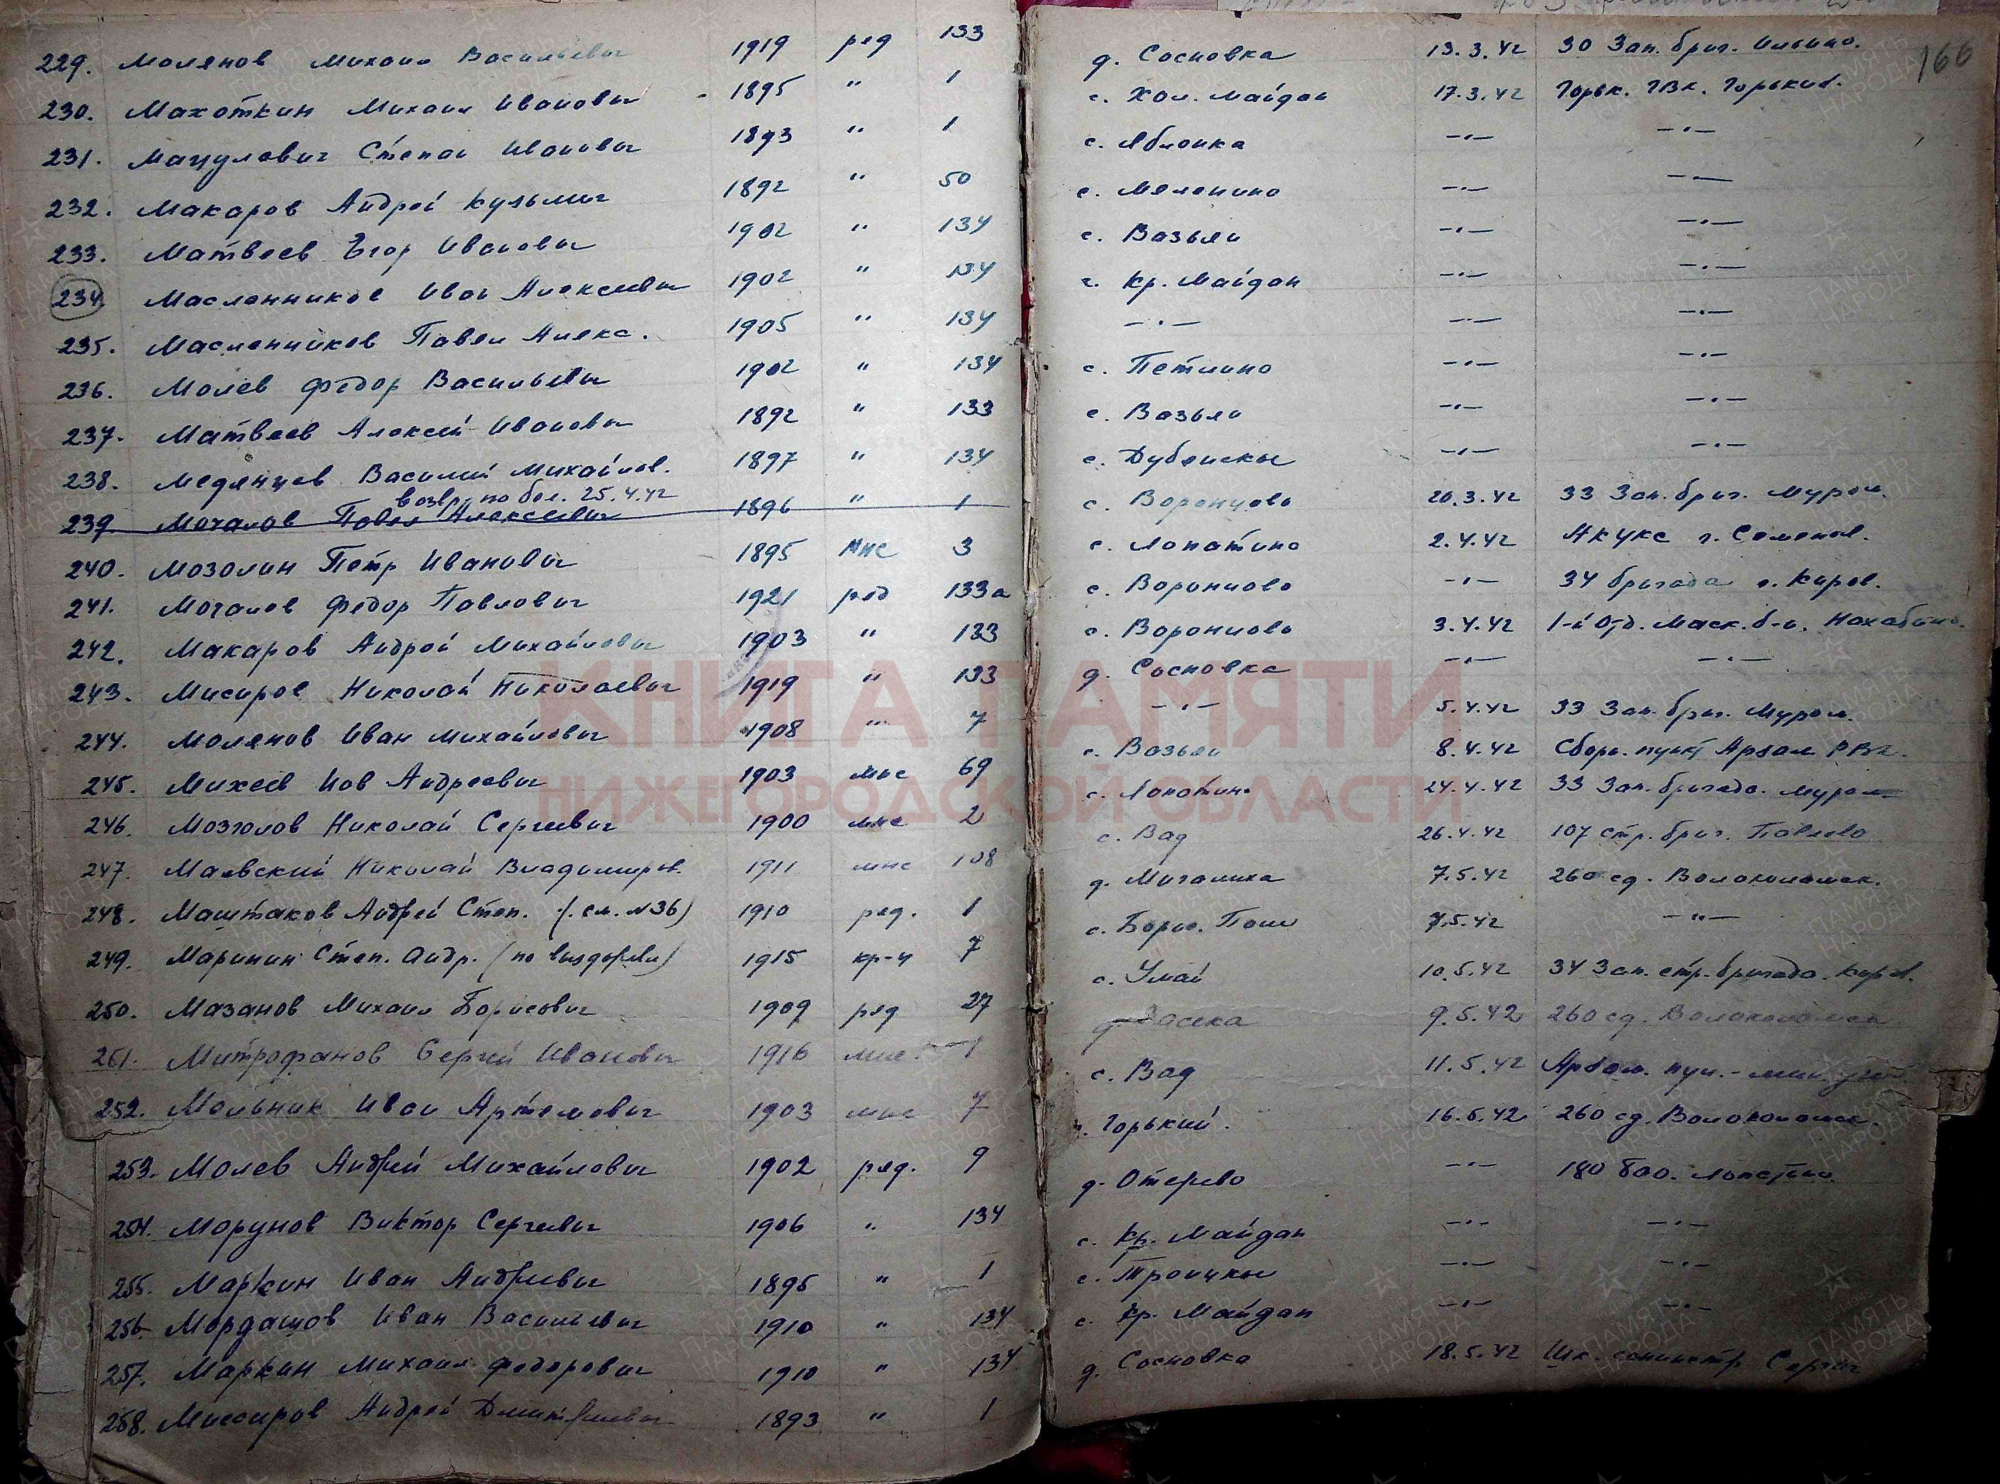 166
229. Молянов Михаил Васильевич 1919 ряд 133 д. Сосновка 13.3.42 30 Зап. бриг. Ильино.
230. Махоткин Михаил Иванович 1895 " 1 с. Хол. Майдан 17.3.42 Горьк. ГВК. Горький.
231. Мацулевич Степан Иванович 1893 " 1 с. Яблонка —·— —·—
232. Макаров Андрей Кузьмич 1892 " 50 с. Мелянино —·— —·—
233. Матвеев Егор Иванович 1902 " 134 с. Вазьян —·— —·—
234. Масленников Иван Алексеевич 1902 " 134 с. Кр. Майдан —·— —·—
235. Масленников Павел Алекс. 1905 " 134 —·— —·— —·—
236. Молев Федор Васильевич 1902 " 134 с. Петлино —·— —·—
237. Матвеев Алексей Иванович 1892 " 133 с. Вазьян —·— —·—
238. Медянцев Василий Михайлов. 1897 " 134 с. Дубенское —·— —·—
возвр. по бол. 25.4.42
239. Мочалов Павел Алексеевич 1896 " 1 с. Воронцово 20.3.42 33 Зап. бриг. Муром.
240. Мозолин Петр Иванович 1895 мнс 3 с. Лопатино 2.4.42 АКУКС г. Семенов.
241. Мочалов Федор Павлович 1921 ряд 133а с. Воронцово —·— 34 бригада г. Киров.
242. Макаров Андрей Михайлович 1903 " 133 с. Воронцово 3.4.42 1-й Отд. Маск. б-н. Нахабино.
243. Мисиров Николай Николаевич 1919 " 133 д. Сосновка —·— —·—
244. Молянов Иван Михайлович 1908 " 7 —·— 5.4.42 33 Зап. бриг. Муром.
245. Михеев Иов Андреевич 1903 мнс 69 с. Вазьян 8.4.42 Сборн. пункт Арзам. РВК.
246. Мозголов Николай Сергеевич 1900 мнс 2 с. Лопатино 24.4.42 33 Зап. бригада. Муром
247. Маевский Николай Владимиров. 1911 мнс 108 с. Вад 26.4.42 107 стр. бриг. Павлово
248. Маштаков Андрей Степ. (см. №36) 1910 ряд. 1 д. Мигалиха 7.5.42 260 сд. Волоколамск.
249. Маринин Степ. Андр. (по выздоров.) 1915 кр-ц 7 с. Борис. Поле 7.5.42 —"—
250. Мазанов Михаил Борисович 1909 ряд 27 с. Умай 10.5.42 34 Зап. стр. бригада. Киров.
251. Митрофанов Сергей Иванович 1916 мнс. 1 д. Засека 9.5.42 260 сд. Волоколамск
252. Мельник Иван Артемович 1903 мнс 7 с. Вад 11.5.42 Арзам. пул.-мин. уч.
253. Молев Андрей Михайлович 1902 ряд. 9 г. Горький. 16.5.42 260 сд. Волоколамск.
254. Морунов Виктор Сергеевич 1906 " 134 д. Отерево —·— 180 бао. Лопатино
255. Маркин Иван Андреевич 1895 " 1 с. Кр. Майдан —·— —·—
256. Мордашов Иван Васильевич 1910 " 134 с. Троицкое —·—
257. Маркин Михаил Федорович 1910 " 134 с. Кр. Майдан —·— —·—
258. Миссиров Андрей Дмитриевич 1893 " 1 д. Сосновка 18.5.42 Шк.
КНИГА ПАМЯТИ
НИЖЕГОРОДСКОЙ ОБЛАСТИ